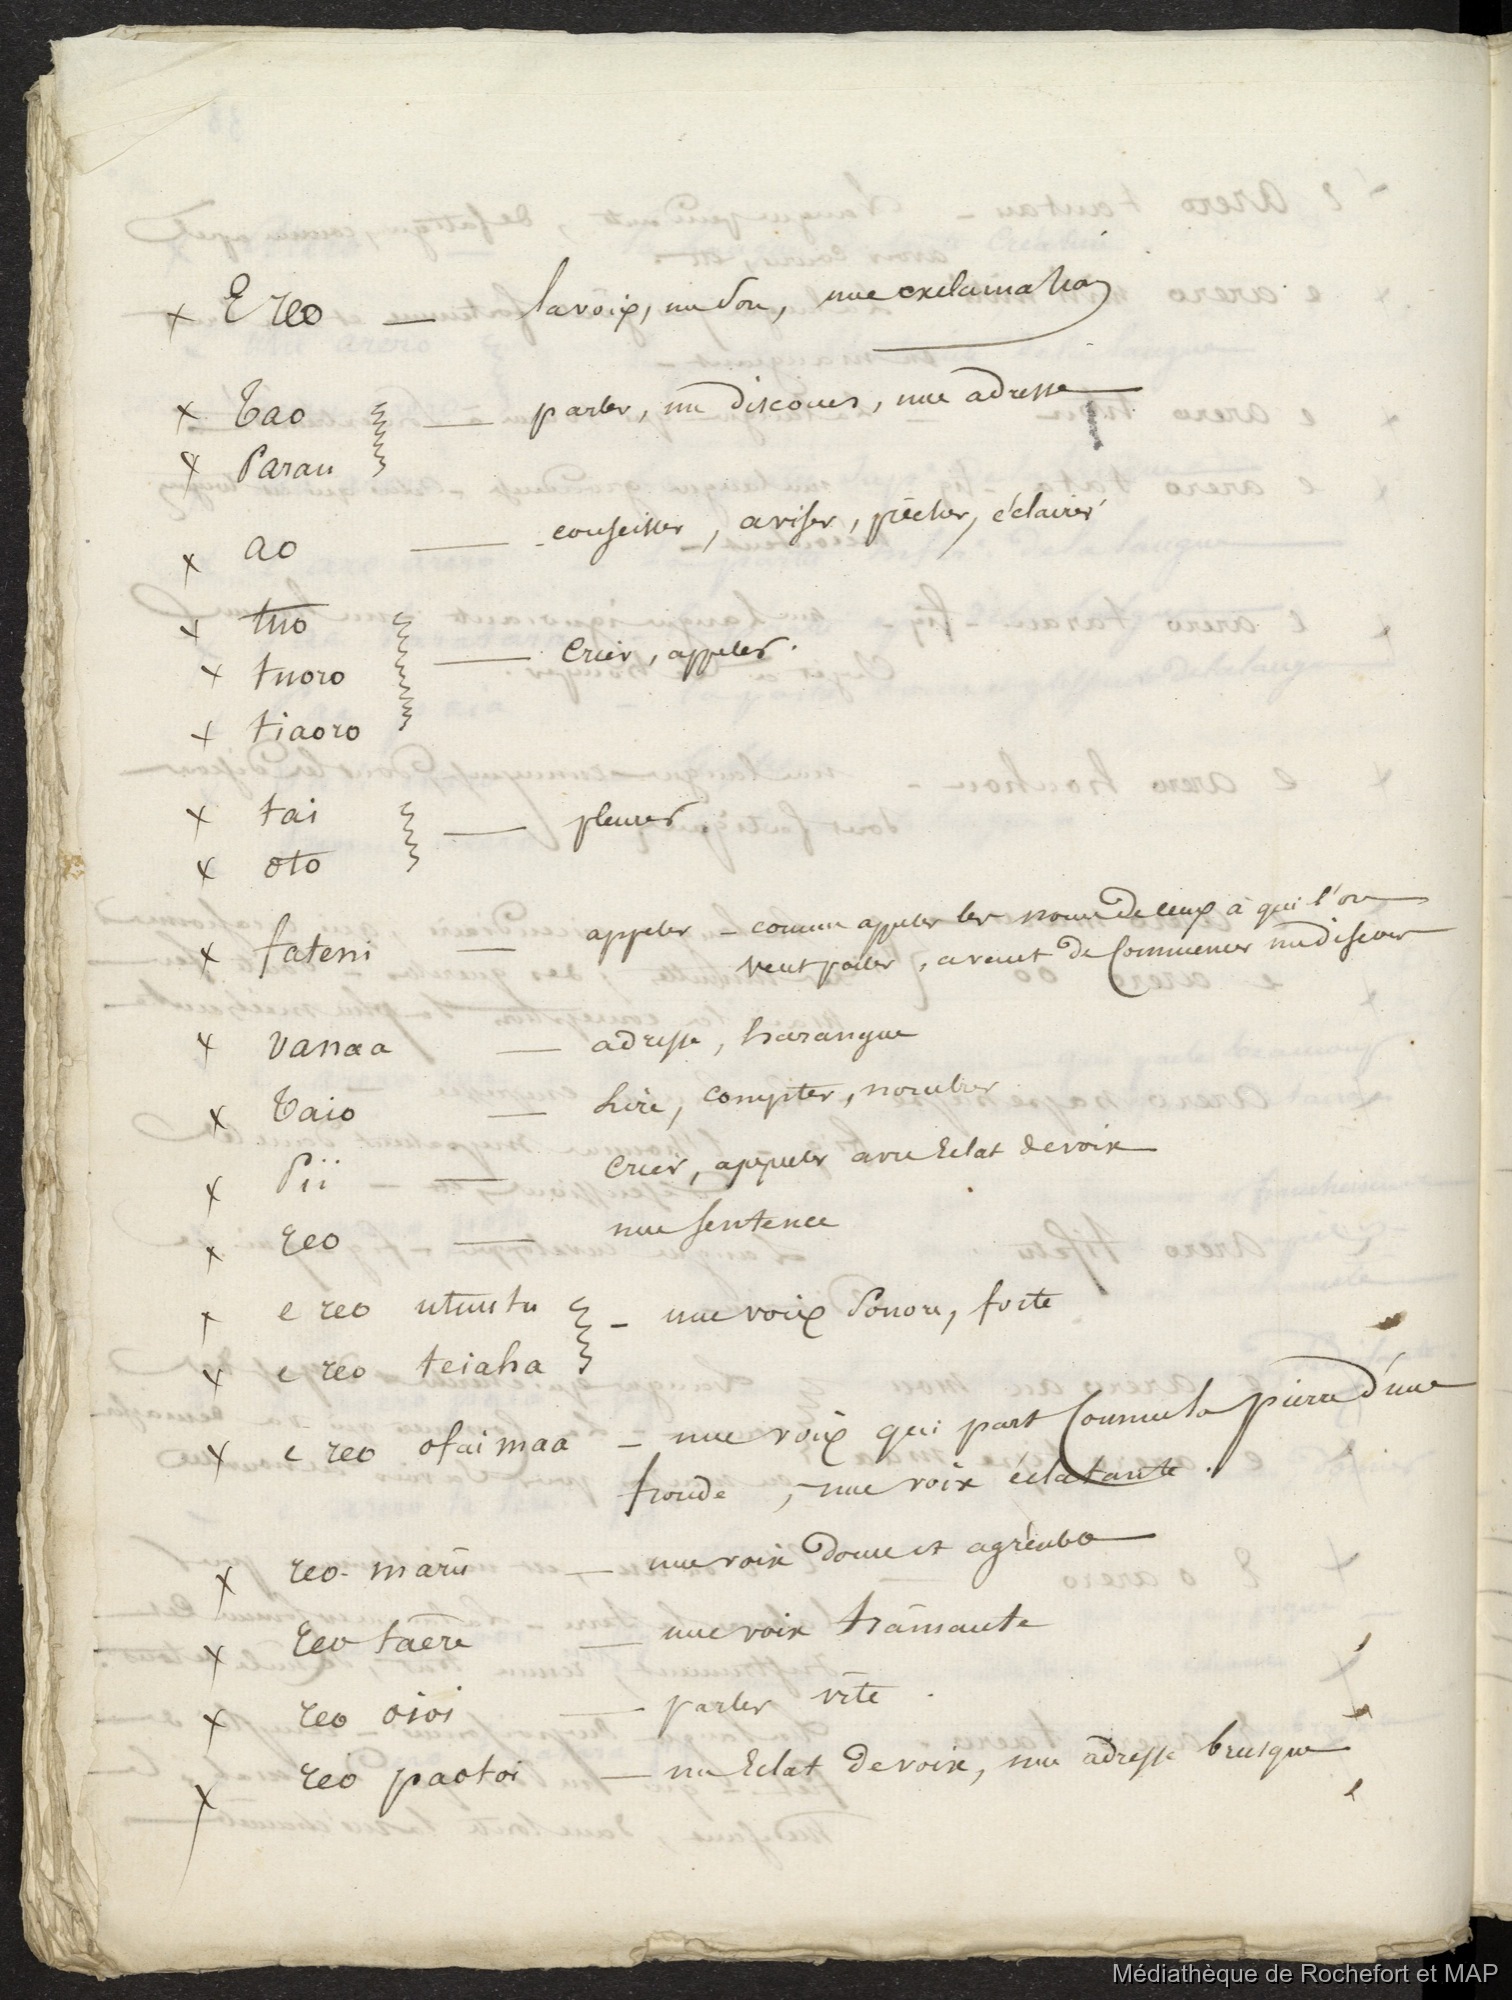 × E reo — la voix, un son, une exclamation
× Tao — parler, un discours, une adresse
× Parau
× ao — conseiller, aviser, pêcher, éclairer
× tuo
× tuoro — crier, appeler.
× tiaoro
× tai — pleurer
× oto
× fateni — appeler - comme appeler les noms de ceux à qui l'on
veut parler, avant de Commencer un discours
× vanaa — adresse, harangue
× Taio — lire, compter, nombrer
× Pii — crier, appeler avec Eclat de voix
× reo — une sentence
× e reo utuutu — une voix sonore, forte
× e reo teiaha
× e reo ofaimaa — une voix qui part Comme la pierre d'une
fronde, une voix éclatante.
× reo marū — une voix douce et agréable
× Reo taēre — une voix traînante
× reo oioi — parler vîte.
× reo paotoi — un Eclat de voix, une adresse brusque
Médiathèque de Rochefort et MAP